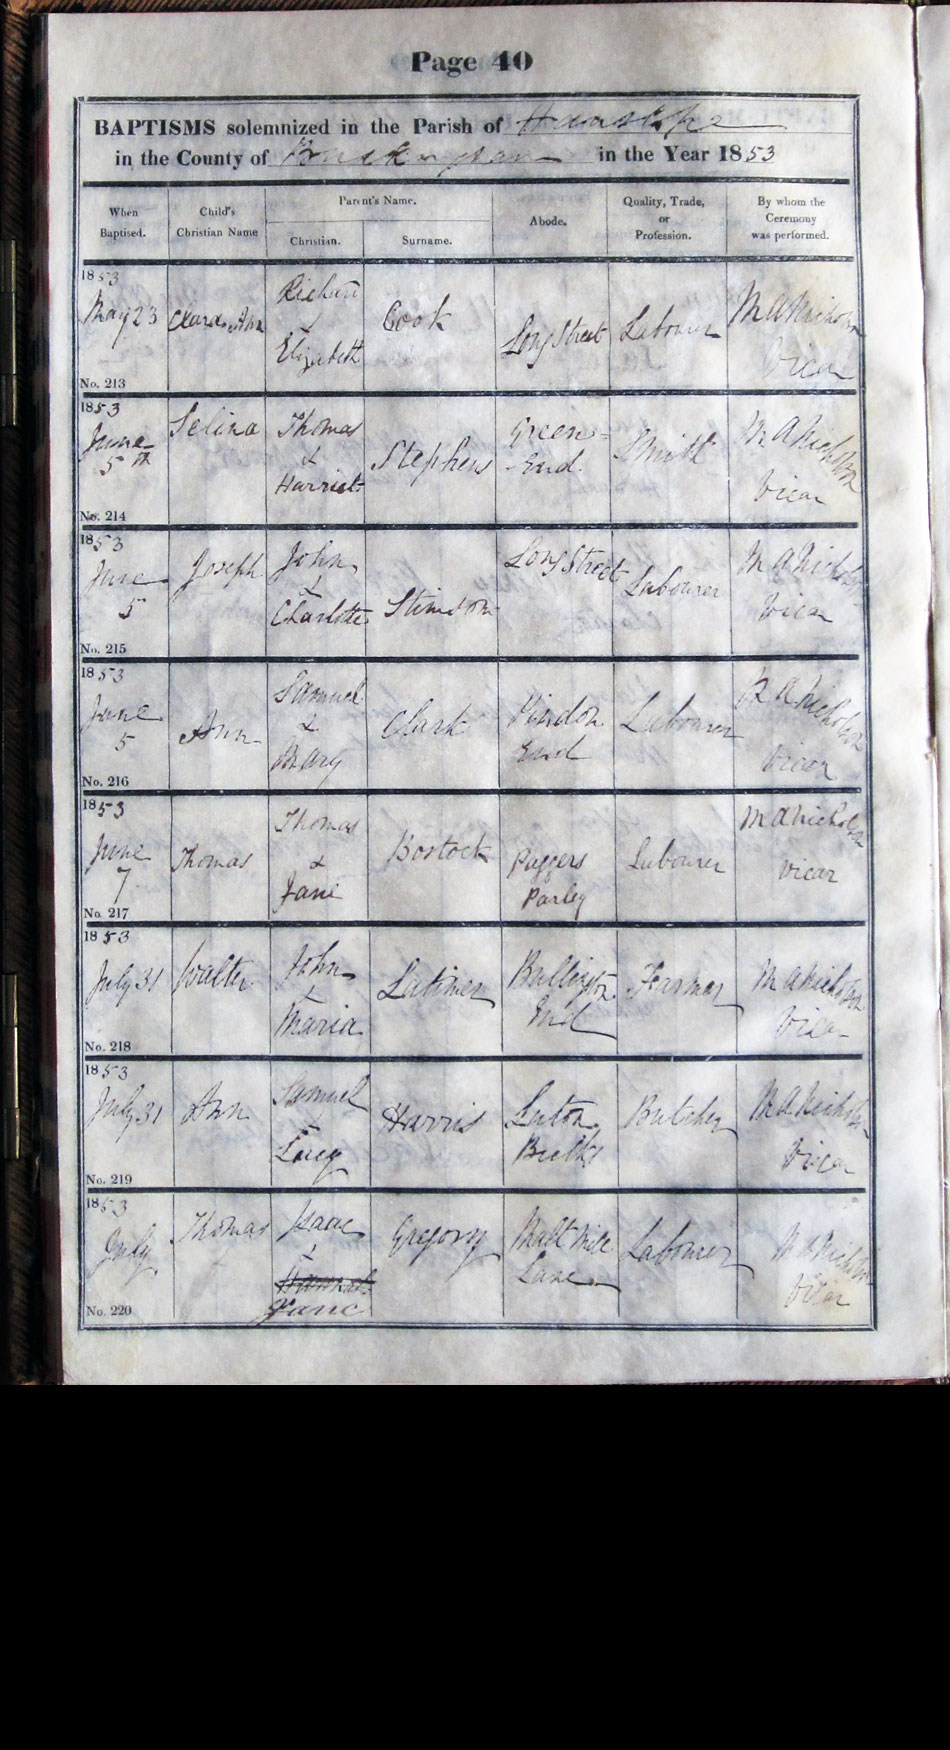 Page 40
BAPTISMS solemnized in the Parish of Hanslope
in the County of Buckingham in the Year 1853
When Baptised.
Child's Christian Name
Parent's Name.
Christian.
Surname.
Abode.
Quality, Trade, or Profession.
By whom the Ceremony was performed.
1853
May 23
Ann
Richard
Elizabeth
Cook
Long Street
Labourer
M A Nicholson
Vicar
No. 213
1853
June
5th
Selina
Thomas
&
Harriet
Stephens
Green
End
Smith
M A Nicholson
Vicar
No. 214
1853
June
5
Joseph
John
&
Charlotte
Stimson
Long Street
Labourer
M A Nicholson
Vicar
No. 215
1853
June
5
Ann
Samuel
&
Mary
Clark
Pindon
End
Labourer
M A Nicholson
Vicar
No. 216
1853
June
7
Thomas
Thomas
&
Jane
Bostock
Labourer
M A Nicholson
Vicar
No. 217
1853
July 31
Walter
John
&
Maria
Latimer
Bullington
End
Farmer
M A Nicholson
Vicar
No. 218
1853
July 31
Ann
Samuel
&
Lucy
Harris
Luton
Butcher
M A Nicholson
Vicar
No. 219
1853
July
Thomas
Isaac
&
Hannah
Jane
Gregory
Malt Mill
Lane
Labourer
M A Nicholson
Vicar
No. 220